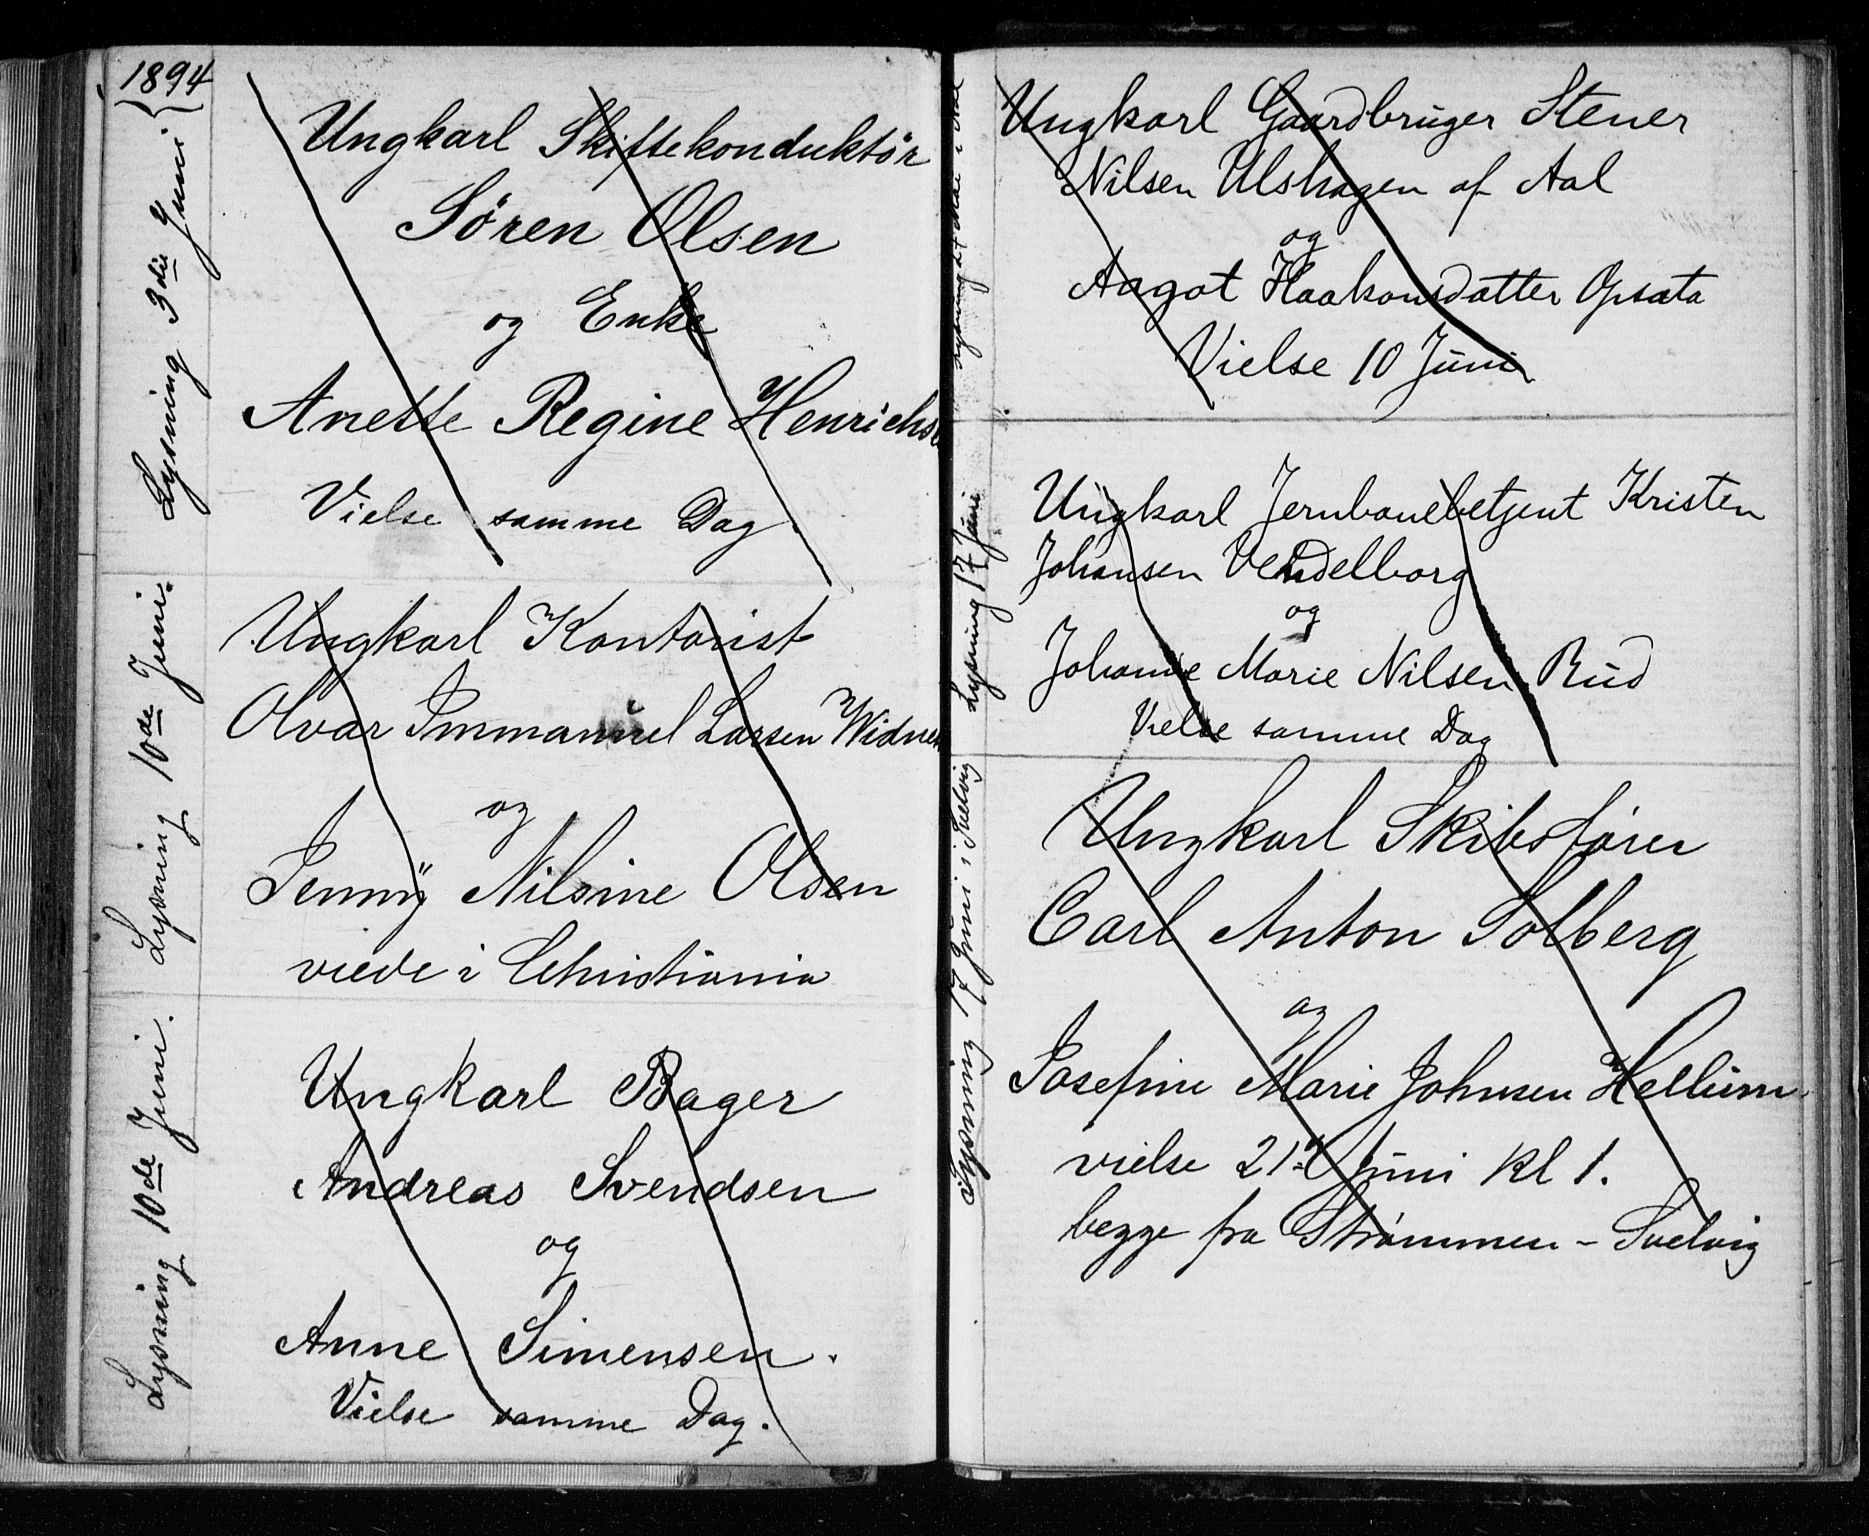 1894
Lysning 3die Juni
Ungkarl Skiftekonduktör
Sören Olsen
og Enke
Anette Regine Henrichs
Vielse samme Dag.
Lysning 10de Juni.
Ungkarl Kontorist
Olvar Immanuel Larsen Widnes
og
Jenny Nilsine Olsen
viede i Christiania
Lysning 10de Juni.
Ungkarl Bager
Andreas Svendsen
og
Anne Simensen.
Vielse samme Dag.
Ungkarl Gaardbruger Stener
Nilsen Ulshagen af Aal
og
Aagot Haakonsdatter Opsata
Vielse 10 Juni
Lysning 17 Juni
Ungkarl Jernbanebetjent Kristen
Johansen Vendelborg
og
Johanne Marie Nilsen Rud
Vielse samme Dag
Lysning 17 Juni i Svelvig
Ungkarl Skibsfører
Carl Anton Solberg
og
Josefine Marie Johnsen Hellum.
vielse 21d Juni kl 1.
begge fra Strømmen - Svelvig